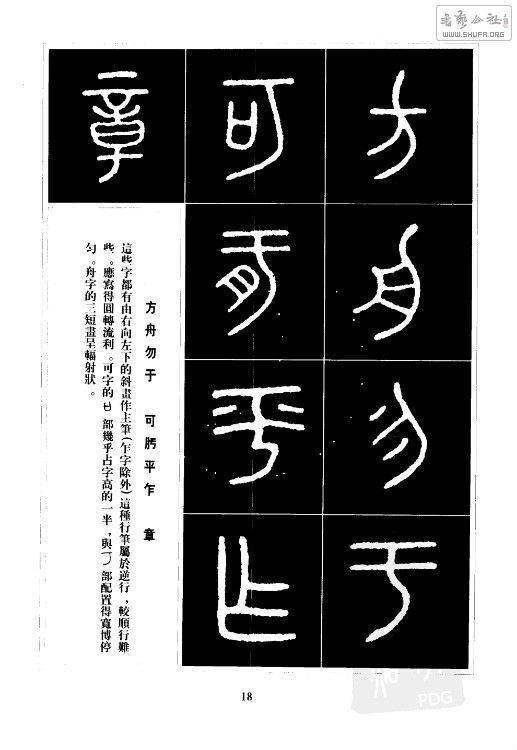 書藝公社
WWW.SHUFA.ORG
方
舟
勿
于
可
平
乍
章
方舟勿于 可 平乍 章
這些字都有由右向左下的斜畫作主筆(乍字除外)這種行筆屬於逆行,較順行難
些。應寫得圓轉流利。可字的 部幾乎占字高的一半,與 部配置得寬博停
勻。舟字的三短畫呈輻射狀。
18
PDG